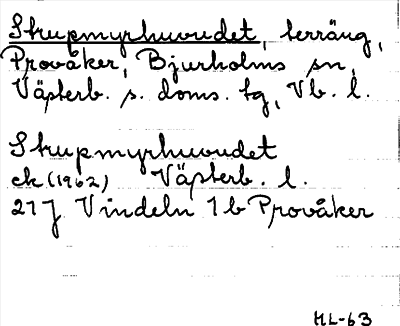 Strupmyrhuvudet, terräng,
Provåker, Bjurholms sn,
Västerb. s. doms. tg, Vb. l.
Strupmyrhuvudet
ek (1962) Västerb. l.
21 J Vindeln 1 b Provåker
HL-63